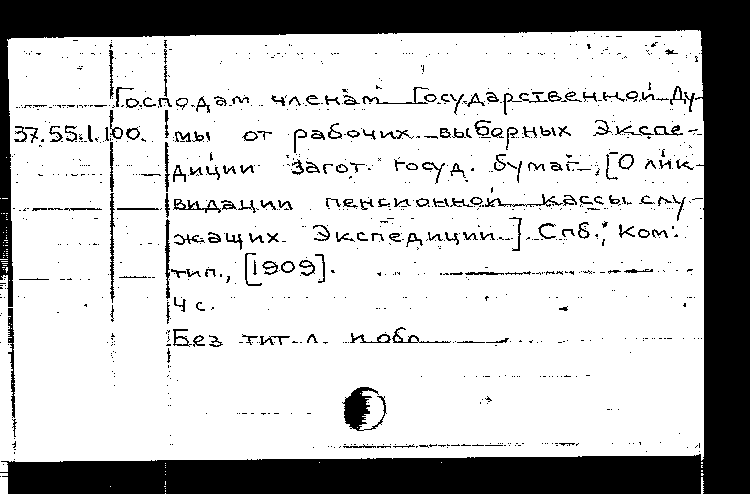 Господам членам Государственной Ду-
37.55.1.100. мы от рабочих выборных Экспе-
диции загот. госуд. бумаг, [О лик-
видации пенсионной кассы слу-
жащих Экспедиции]. Спб., Ком.
тип., [1909].
4 с.
Без тит. л. и обл.